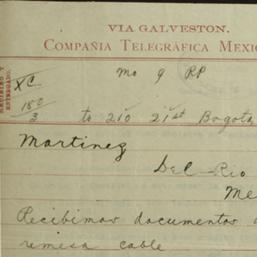 VIA GALVESTON.
COMPAÑIA TELEGRÁFICA MEXI
RECIBIDO Y
ENTREGADO.
XC
180
3
Mo 9 RP
to 210 21st Bogota
Martinez
Del Rio
Me
Recibimos documentos
remesa cable